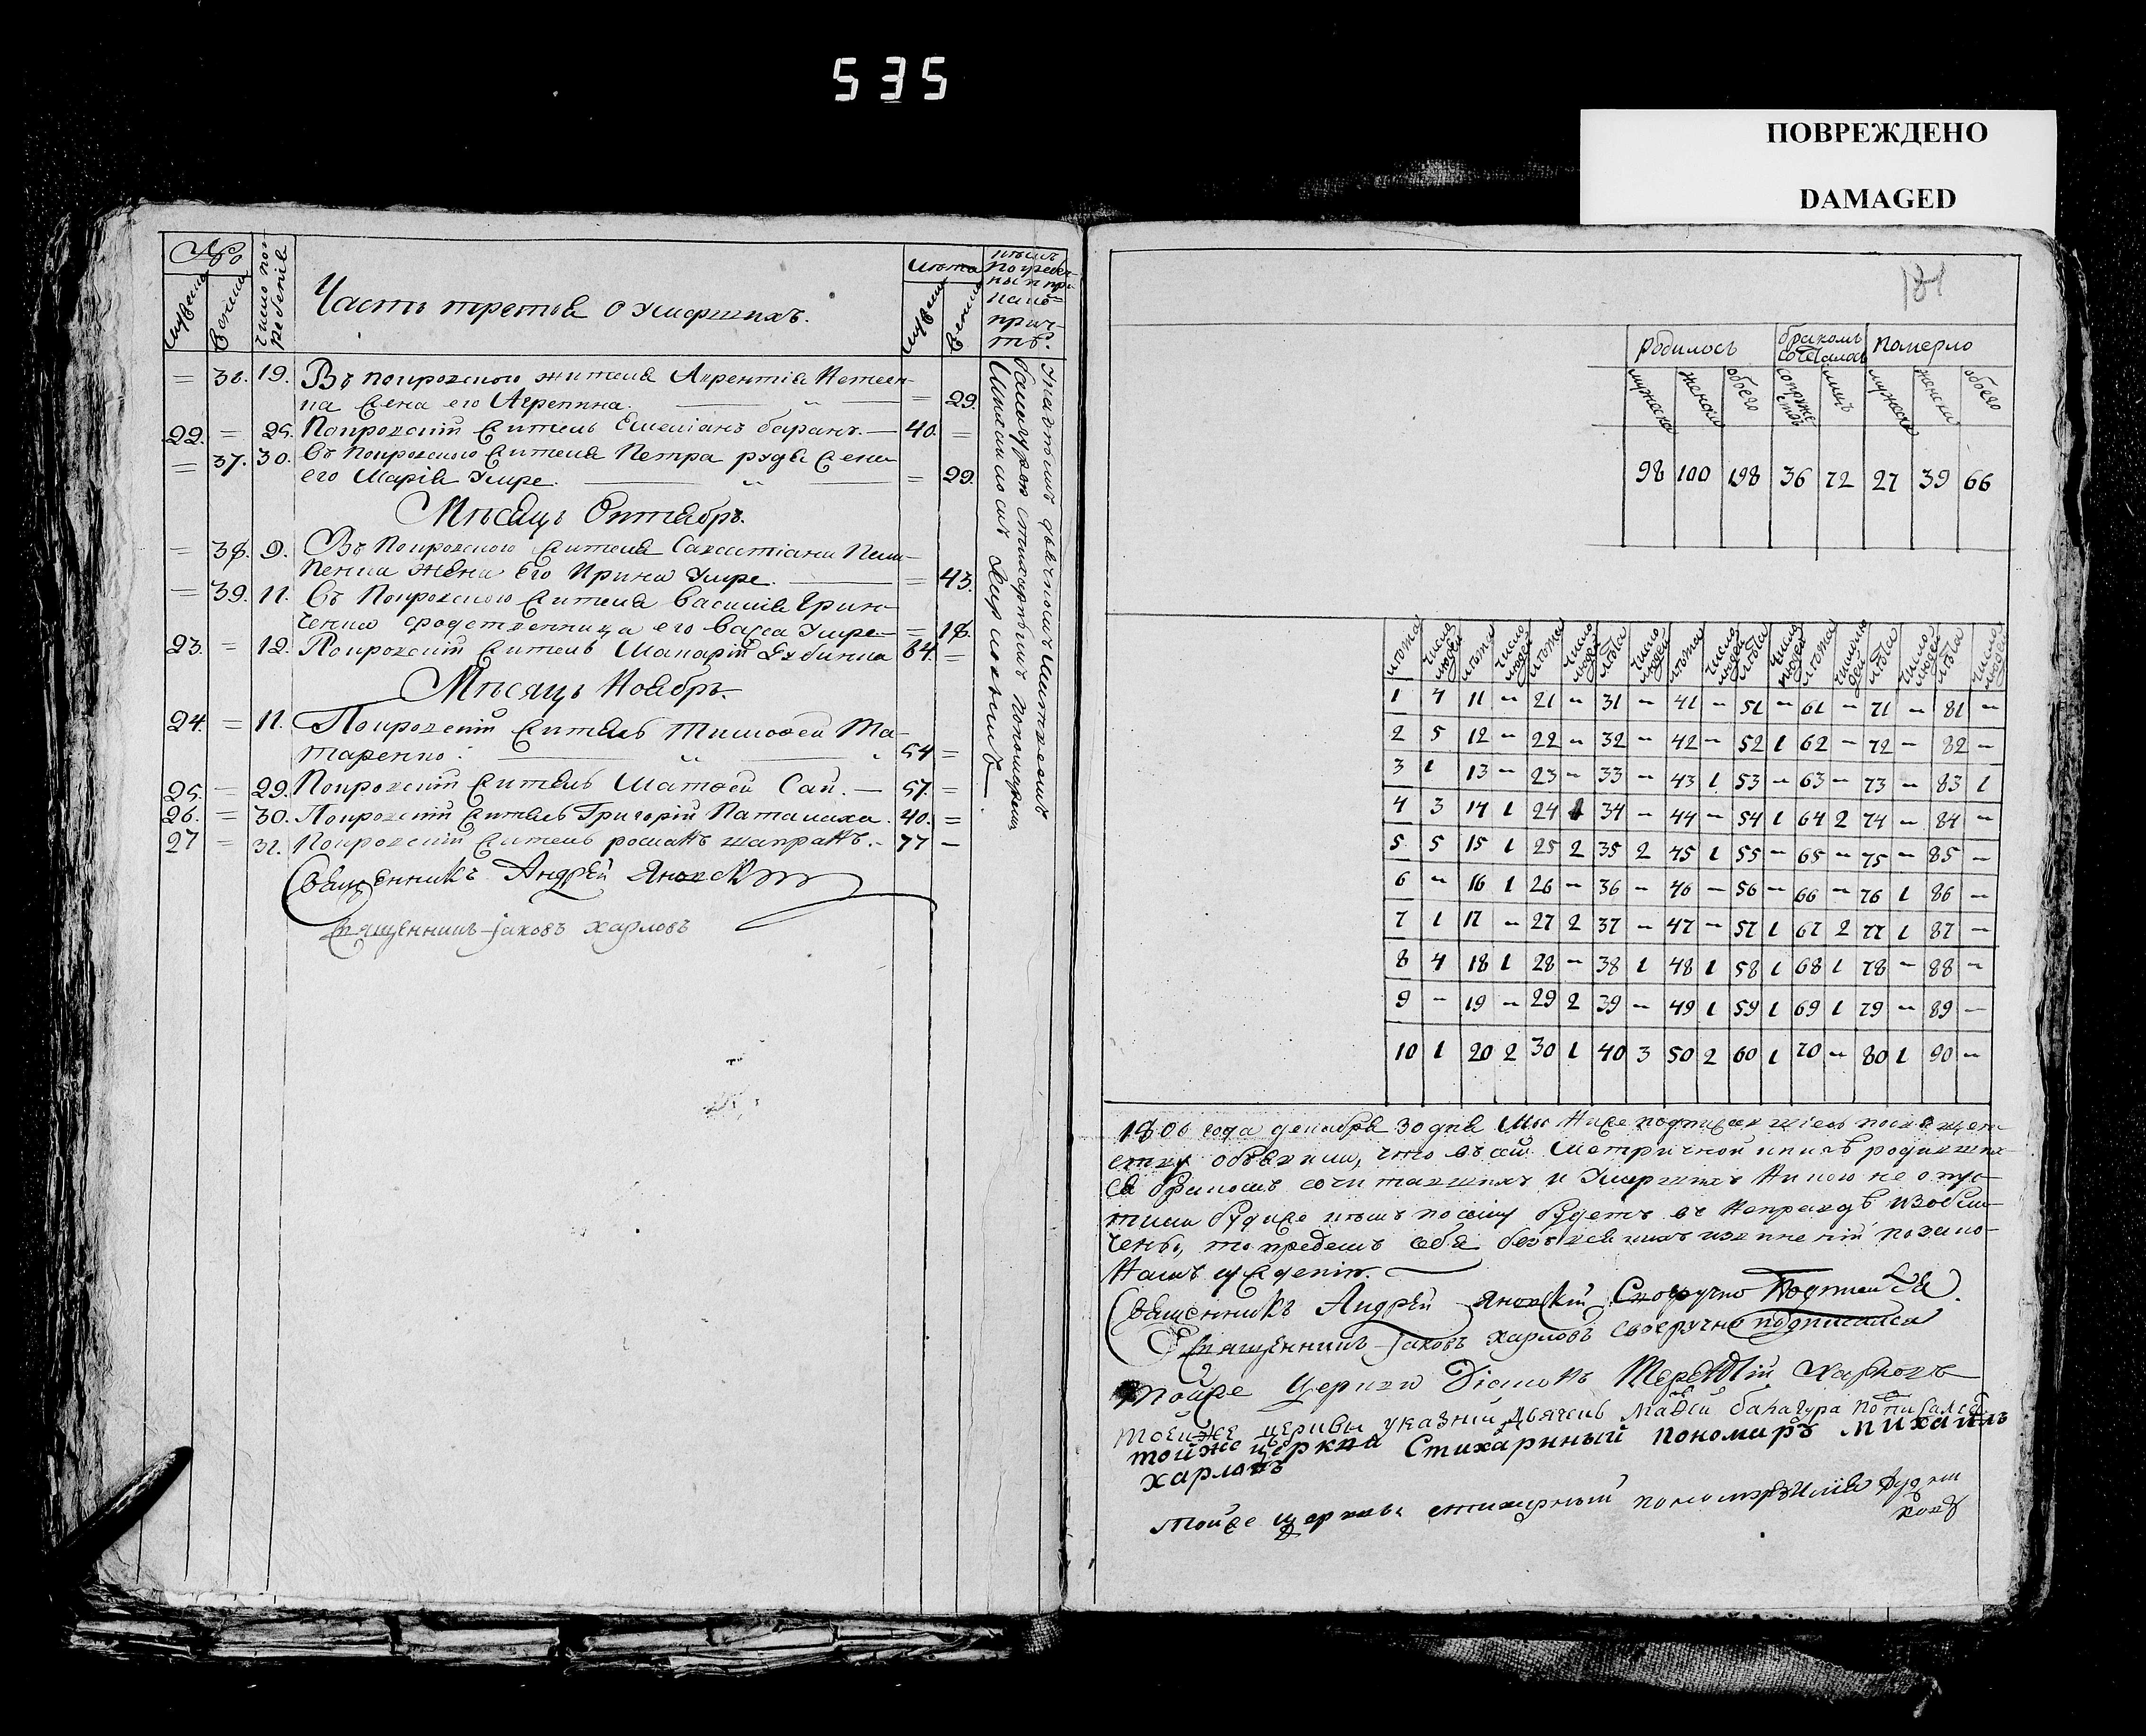 535
ПОВРЕЖДЕНО
DAMAGED
№
мужеска
женска
число погребенія
Часть третья о умершихъ.
лета
мужеска
женска
= 36. 19. Въ покровского жителя Лаврентія
на жена его Агрепина. = 29.
22. = 25. Покровскій житель Емеліанъ баранъ. 40. =
= 37. 30. Въ Покровского жителя Петра рудя жена
его Марія умре. = 29.
Месяцъ Октябръ.
= 38. 9. Въ Покровского жителя Савастіана
жена его Ирина умре. = 43.
= 39. 11. Въ Покровского жителя Василія Грин-
ченка сродственница его Васса умре = 18.
23. = 12. Покровскій житель Макарій 84. =
Месяцъ Ноябръ.
24. = 11. Покровскій житель Тимофей Та-
таренко. 54 =
25. = 29. Покровскій житель Матфей Сай. 57. =
26. = 30. Покровскій житель Григорій Паталаха. 40. =
27 = 31. Покровскій житель романъ шапранъ. 77 =
Священникъ Андрей Яновскій
Священникъ Іаковъ харловъ
181
родилось
бракомъ сочеталось
померло
мужеска женска обоего супружествъ лицъ мужеска женска обоего
98 100 198 36 72 27 39 66
лета число людей лета число людей лета число людей лета число людей лета число людей лета число людей лета число людей лета число людей лета число людей
1 4 11 – 21 – 31 – 41 – 51 – 61 – 71 – 81 –
2 5 12 – 22 – 32 – 42 – 52 1 62 – 72 – 82 –
3 1 13 – 23 – 33 – 43 1 53 – 63 – 73 – 83 1
4 3 14 1 24 1 34 – 44 – 54 1 64 2 74 – 84 –
5 5 15 1 25 2 35 2 45 1 55 – 65 – 75 – 85 –
6 – 16 1 26 – 36 – 46 – 56 – 66 – 76 1 86 –
7 1 17 – 27 2 37 – 47 – 57 1 67 2 77 1 87 –
8 4 18 1 28 – 38 1 48 1 58 1 68 1 78 – 88 –
9 – 19 – 29 2 39 – 49 1 59 1 69 1 79 – 89 –
10 1 20 2 30 1 40 3 50 2 60 1 70 – 80 1 90 –
1806 года декабря 30 дня мы ниже подписавшіесь по священ-
ству объявили, что въ сей метричной книге родивших
ся бракомъ сочитавшихъ и умершихъ никого не опус-
тили будиже кемъ по сему будетъ въ неправде изобли-
ченъ, то предемъ себя безъ всякихъ извиненій позако-
намъ сужденію.
Священникъ Андрей Яновскій своеручно подписался.
Священникъ Іаковъ харловъ своеручно подписался
тойже церкви Діаконъ Терентій Харловъ
тоейже церкви указний дьячекъ Матфей балагура подписался
тойже церкви Стихарнный пономаръ михаилъ
харловъ
тойже церкви стихарный пономаръ Илия